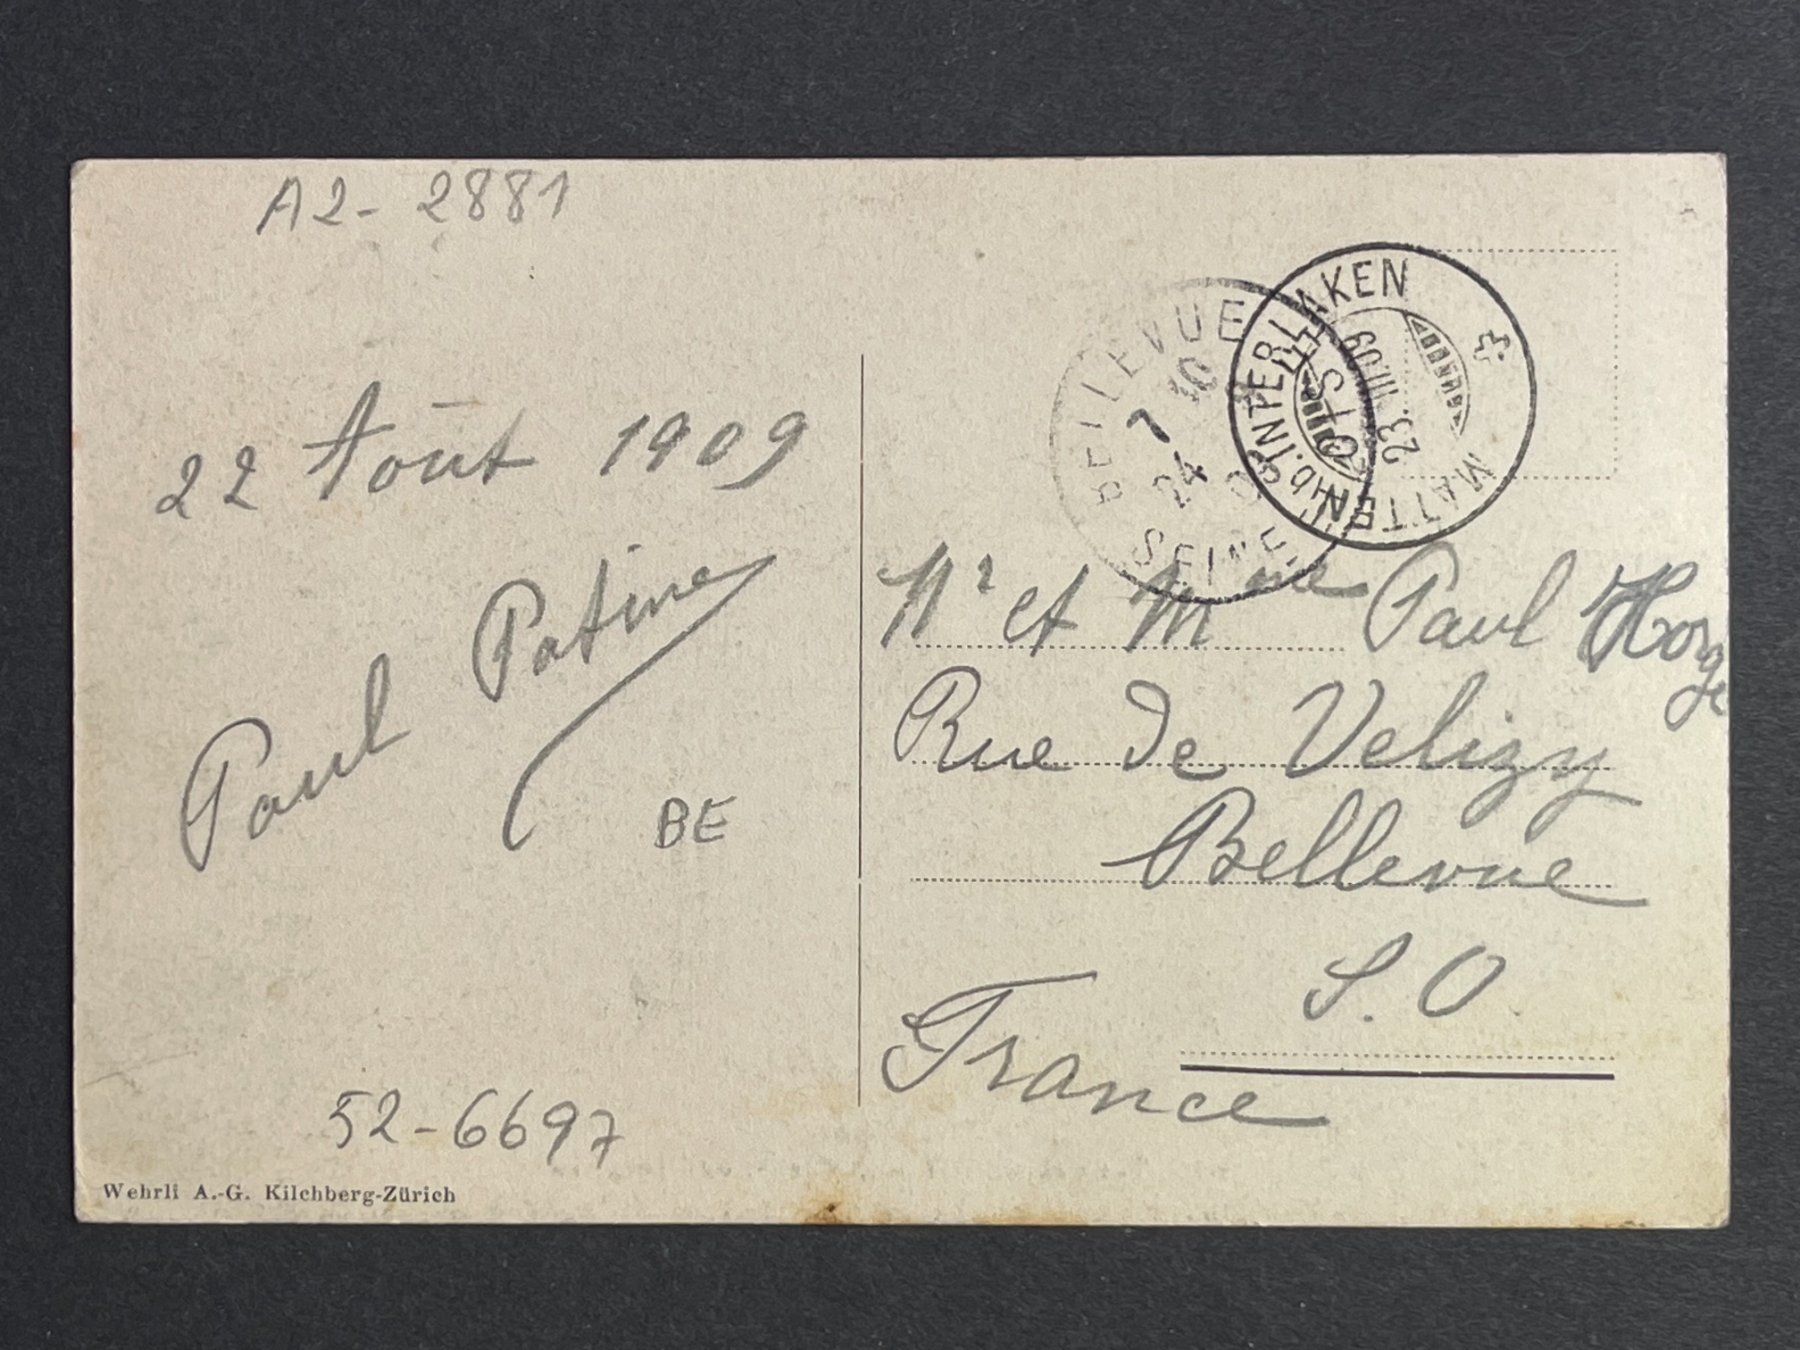 A2- 2881
22 Août 1909
Paul Patine
BE
52-6697
Wehrli A.-G. Kilchberg-Zürich
BELLEVUE
7 10
24
09
SEINE ET OISE
MATTEN b. INTERLAKEN
23. VIII 09
Mr et Mme Paul Horge
Rue de Velizy
Bellevue
S. O.
France